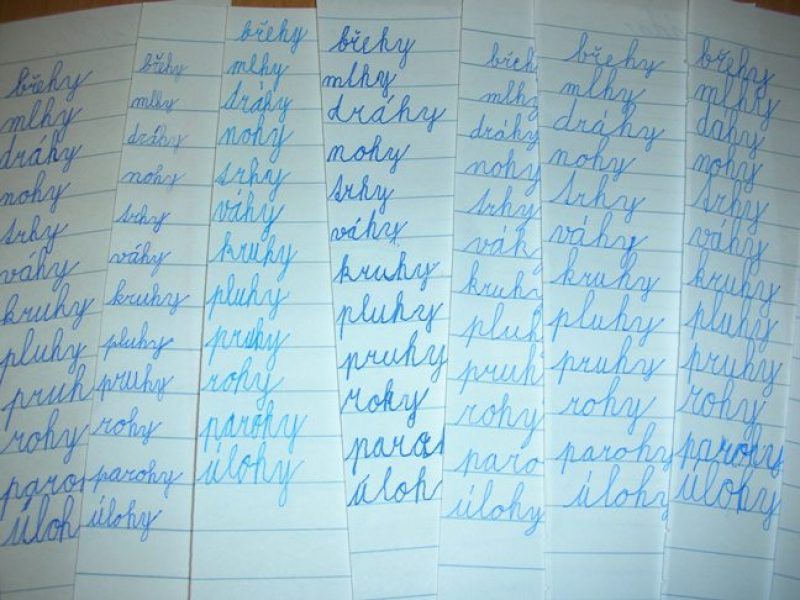 břehy
mlhy
dráhy
nohy
trhy
váhy
kruhy
pluhy
pruh
rohy
paro
úloh
břehy
mlhy
dráhy
nohy
trhy
váhy
kruhy
pluhy
pruhy
rohy
parohy
úlohy
břehy
mlhy
dráhy
nohy
trhy
váhy
kruhy
pluhy
pruhy
rohy
parohy
úlohy
břehy
mlhy
dráhy
nohy
trhy
váhy
kruhy
pluhy
pruhy
rohy
paro
úloh
břeh
mlh
dráhy
nohy
trhy
váh
kruhy
pluh
pruh
rohy
paro
úlohy
břehy
mlhy
dráhy
nohy
trhy
váhy
kruhy
pluhy
pruhy
rohy
parohy
úlohy
břehy
mlhy
dáhy
nohy
trhy
váhy
kruhy
pluhy
pruhy
rohy
parohy
úlohy